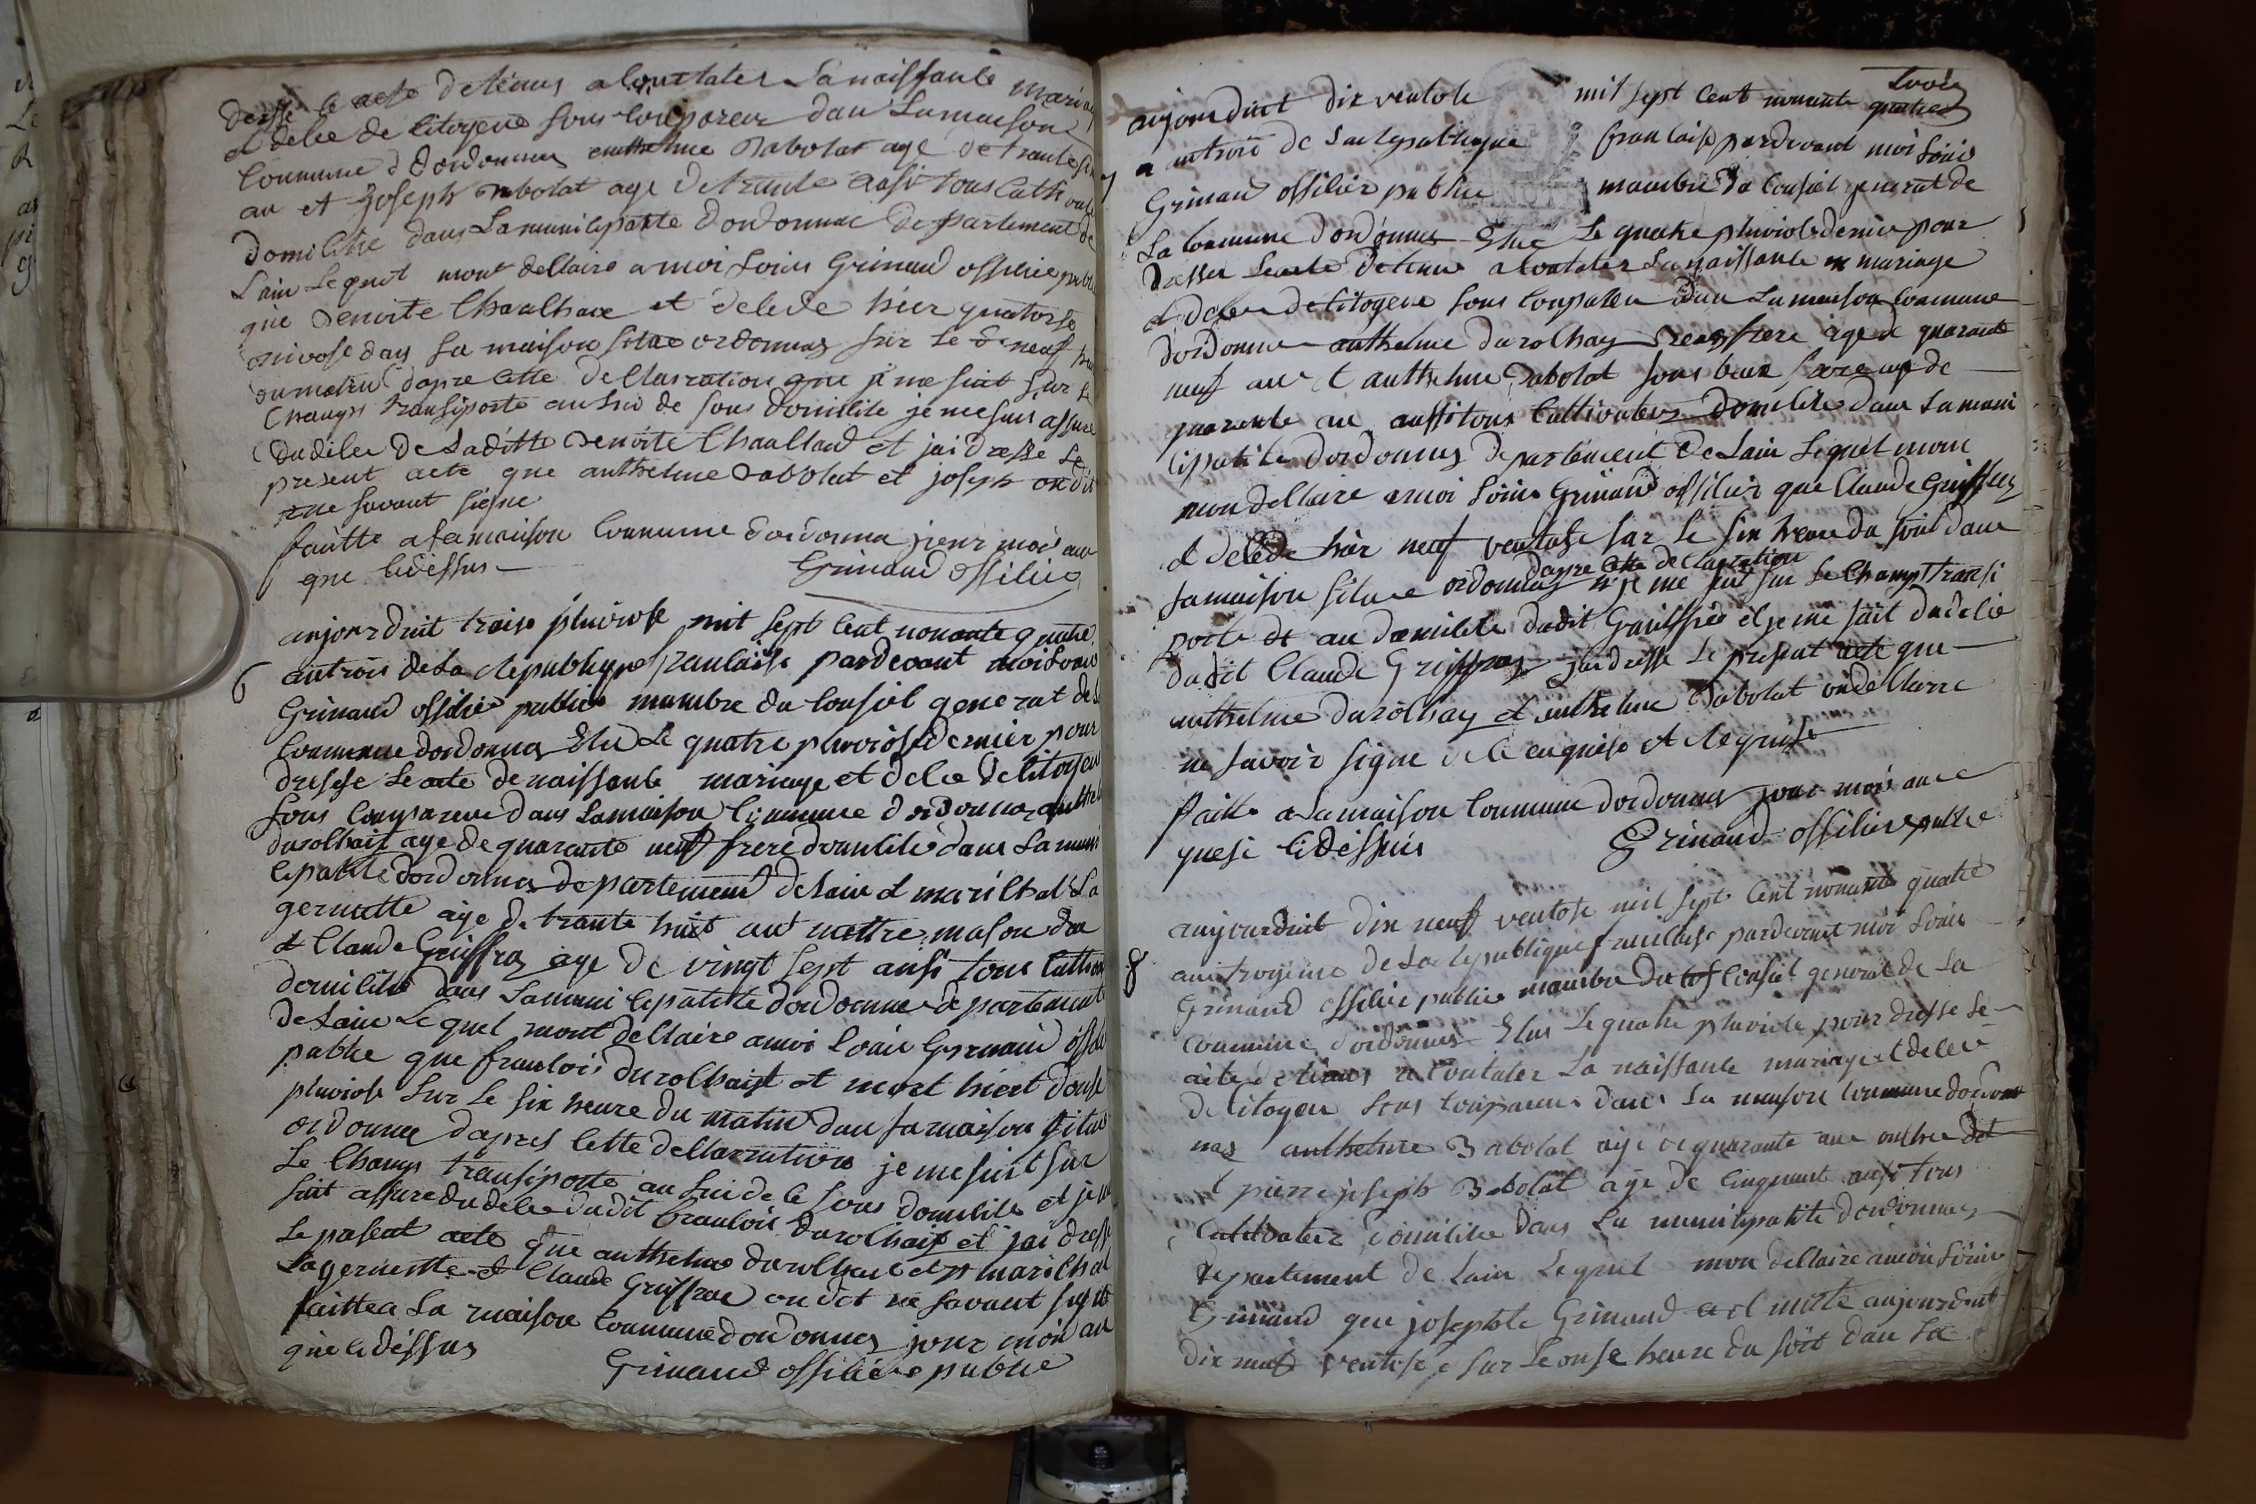 dresse le acte detenus a Contater La naissance mariage
et delce de Citoyene sons Compareu dan Lamaison
Commune d'Dordonnas anthelme Rabolat age de trante six
an et Joseph Rabolat age de trante ausi tous Cultivate
domicilie dans La municipalite dordonnas departement de
Lain Lequel mont dellaire a moi Louis Grinand officie public
que Benoite Chaalland et delede hier quatorse
nivose dans sa maison situe ordonnas sur Le neuf heure
du matin dapre Cette dellarration que je me suit sur le
Champs transporte au lui de sons domicile je me suis assure
du delce de Laditte Benoite Chaalland et jai dresse Le
present acte que anthelme Rabolat et joseph on dit
ne savant signe
faitte a la maison Commune dordonna jour moi an
que Cidessus
Grinand officie
6
aujourduit traise pluviose mit sept Cent nonante quatre
antrois de La Republique francaise pardevant moi Louis
Grinand officie public mambre du Consiel generat de
Commune dordonnas Elu Le quatre pluviose dernier pour
dresse Le acte de naissance mariage et delce de Citoyen
sons Comparue dans Lamaison Commune dordonnas anthel
durolhait age de quarante neuf frere domicilie dans La muni
cipalite dordonnas departement de Lain et marilhal La
gernette age de trante huit ant mettre mason
et Claude Griffraz age de vingt sept ansi tous Cultiva
domicilie dans La municipalitte dordonnas departement
de Lain Lequel mont dellaire a moi Louis Grinand officie
public que francois durolhait et mort hiert douse
pluviose sur Le six heure du matin dan sa maison situe
ordonna dapres Cette dellarration je me suit sur
Le Champs transporte au lui de Le sons domicile et je me
suit assure du delce dudit francois durolhait et jai dresse
Le present acte que anthelme durolhait et marilhal
La gernette et Claude Griffraz on dit ne savant signe
faittea La maison Commune dordonnas jour moi an
que Cidessus
Grinand officiere public
7
aujourduit dix ventose mit sept Cent nonante quatre
trois
a antrois de La republique francaise pardevant moi Louis
Grinand officier public mambre du Consiel general de
La Commune dordonnas Elue Le quatre pluviose dernier pour
dresser Leacte detenue a Contater La naissance mariage
et delce de Citoyene sons Comparu dan Lamaison Commune
dordonna anthelme durolhay frere age de quarante
neuf an et anthelme Rabolat sons beau frere age de
quarante an aussi tous Cultivateur domicilie dans La muni
cipalite dordonnas departement de Lain Lequel mon
mon dellaire a moi Louis Grinand officier que Claude Griffraz
et delede hier neuf ventose sur Le six heure du soir dans
dapre Cette declaration
sa maison situe ordonnas je me suit sur Le Champs transi
porte au domicile dudit Griffraz et je me suit du delce
dudit Claude Griffraz jai dresse Le present acte que
anthelme durolhay et anthelme Rabolat on dellarre
ne savoir signe de Le enquise et Requise
faitte a La maison Commune dordonnas jour moi an
que si Cidessus
Grinand officiere public
8
aujourduit dix neuf ventose mil sept Cent nonante quatre
antroisieme de La republique francaise pardevant moi Louis
Grinand officie public mambre du Consiel general de La
Commune dordonnas Elus Le quatre pluviose pour dresse Le
acte detenus a Contater La naissance mariage et delce
de Citoyen sons Comparu dans La maison Commune dordon
nas anthelme Rabolat age de quarante an
et pierre joseph Rabolat age de Cinquant ausi tous
Cultivateur domicilie dans La municipalite dordonnas
departement de Lain Lequel mon dellaire a moi Louis
Grinand que josephte Grinand et morte aujourduit
dix neuf ventose sur Le onse heure du soit dan Sa